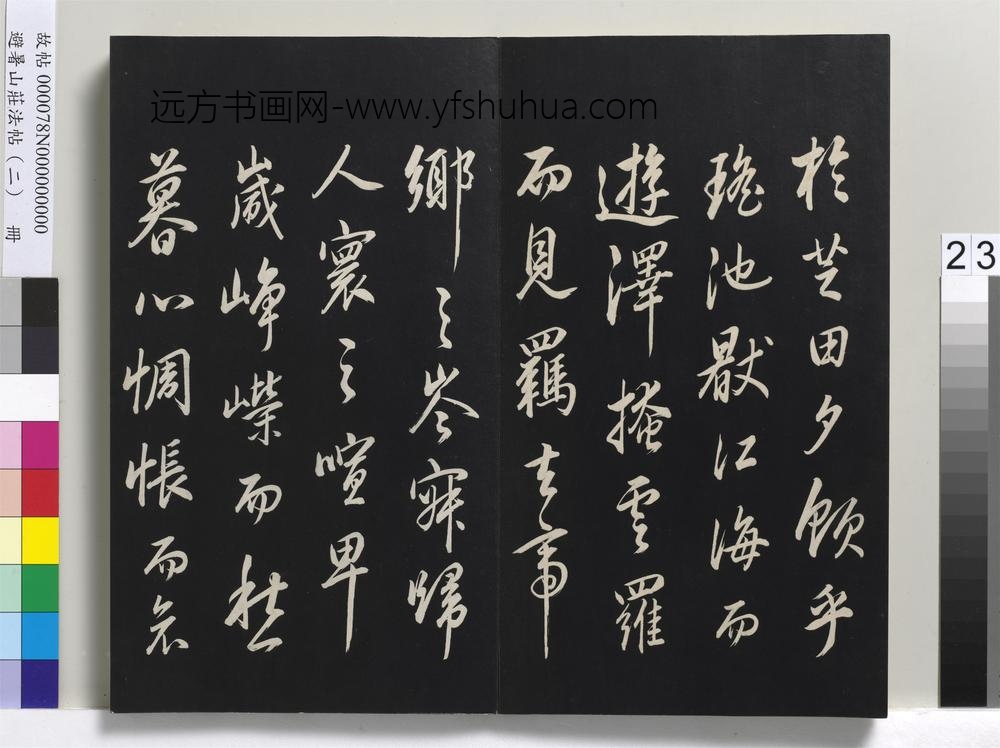 於芝田夕飲乎
瑤池猒江海而
遊澤掩雲羅
而見羈去帝
鄉之岑寂歸
人寰之喧卑
歲崢嶸而愁
暮心惆悵而哀
远方书画网-www.yfshuhua.com
故帖 000078N000000000
避暑山莊法帖（二） 冊
23